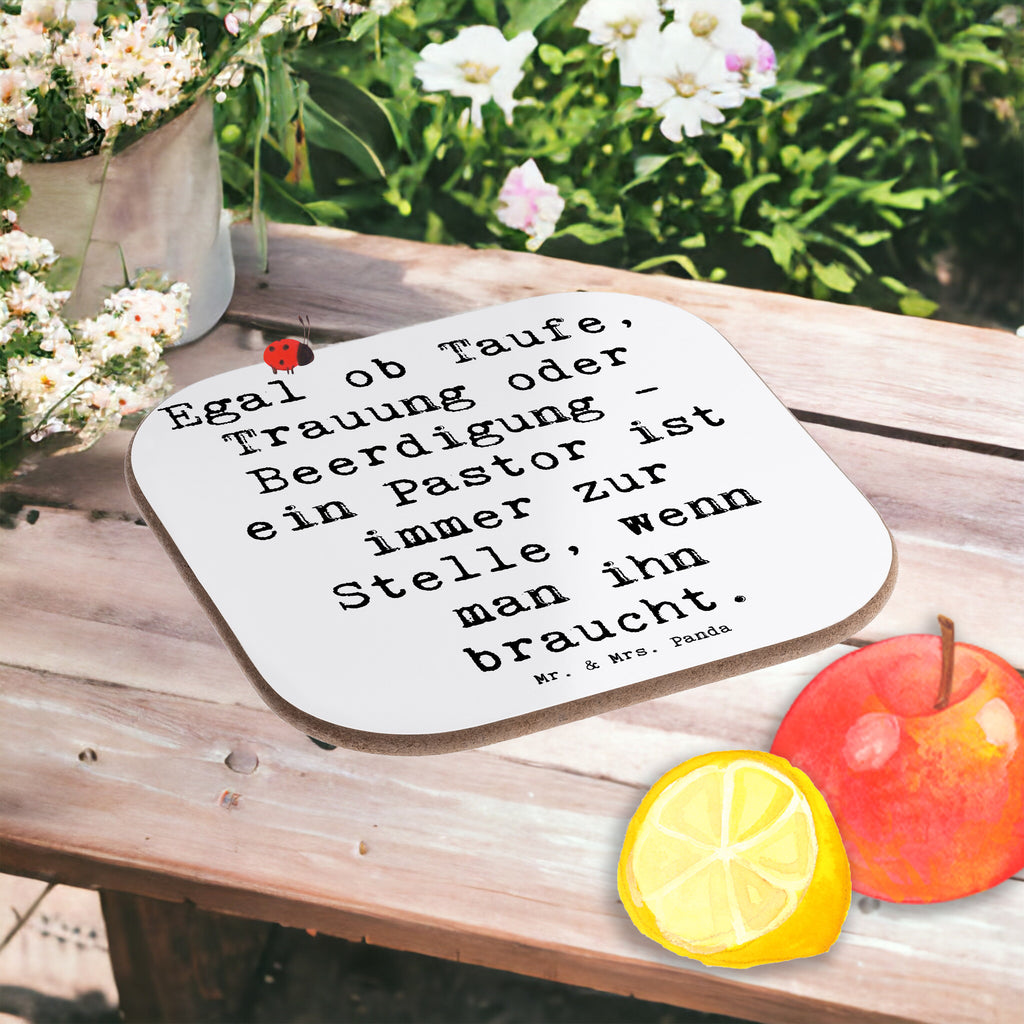 Egal ob Taufe,
Trauung oder
Beerdigung -
ein Pastor ist
immer zur
Stelle, wenn
man ihn
braucht.
Mr. & Mrs. Panda